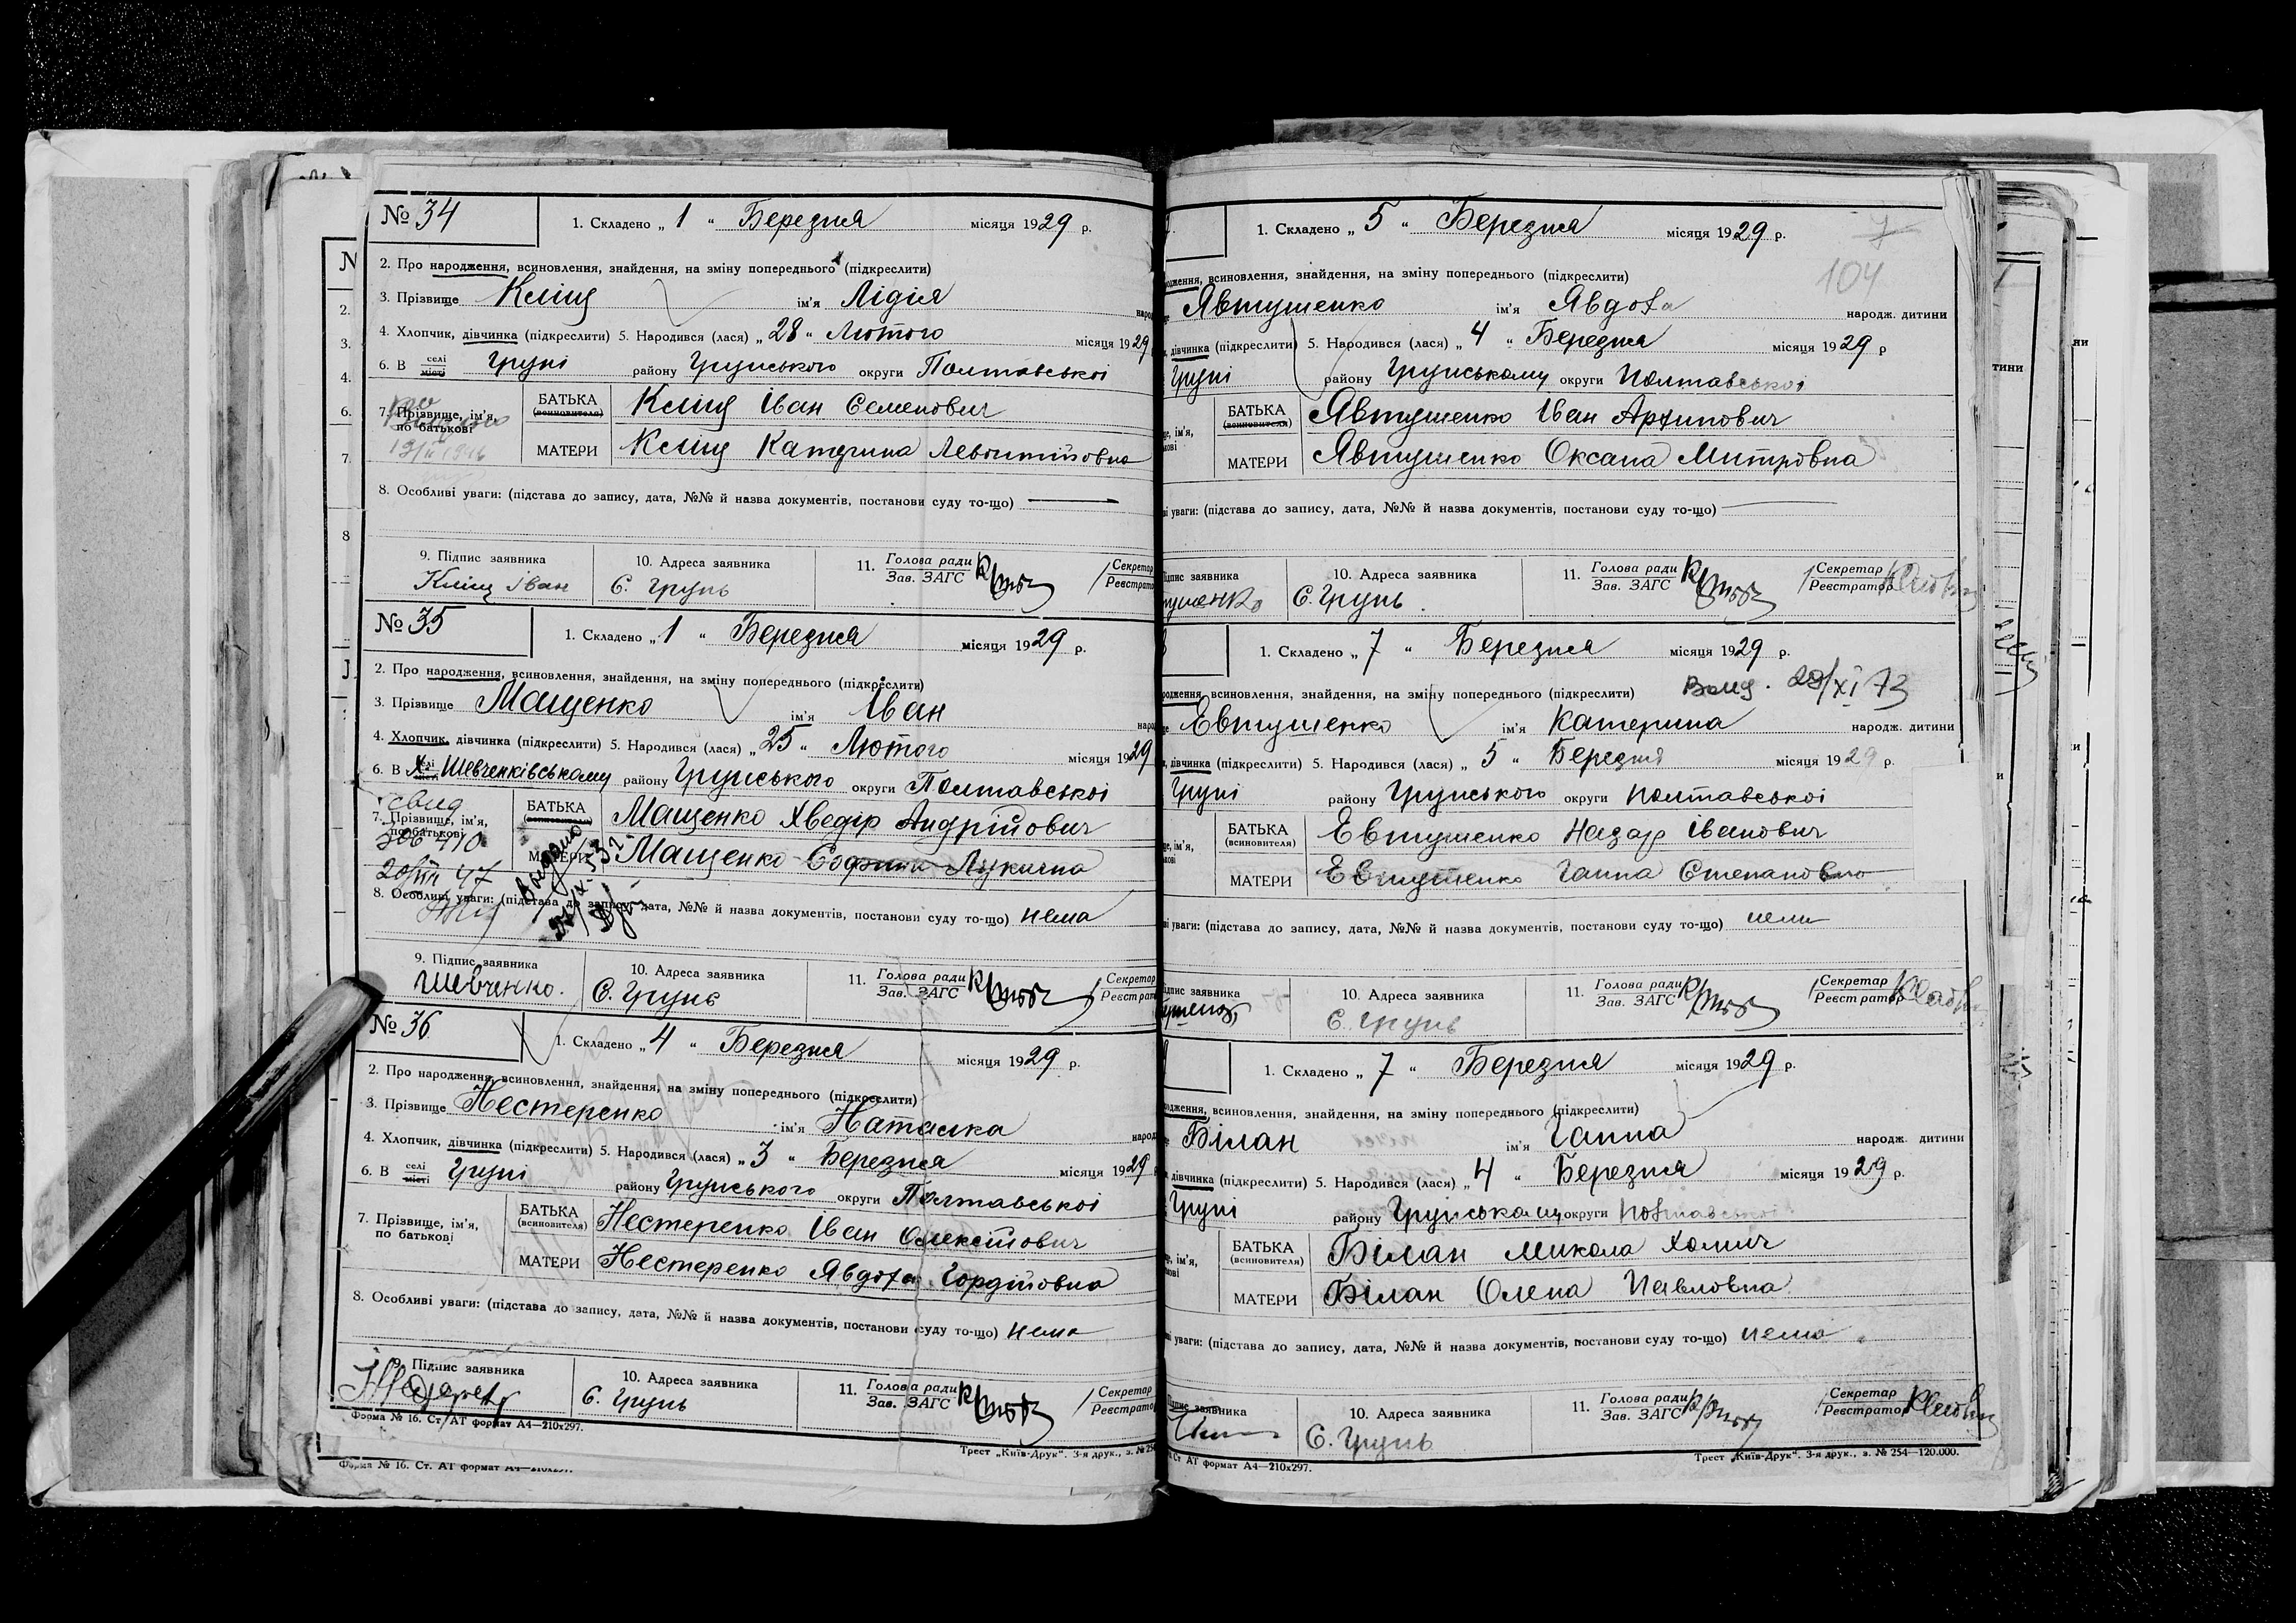 № 34
1. Складено „ 1 “ Березня місяця 1929 р.
2. Про народження, всиновлення, знайдення, на зміну попереднього (підкреслити)
3. Прізвище Кліщ ім'я Лідія
4. Хлопчик, дівчинка (підкреслити) 5. Народився (лася) „ 28 “ Лютого місяця 1929
6. В селі місті Груні району Грунського округи Полтавської
7. Прізвище, ім'я, по батькові
БАТЬКА (всиновителя) Кліщ Іван Семенович
МАТЕРИ Кліщ Катерина Левонтійовна
8. Особливі уваги: (підстава до запису, дата, №№ й назва документів, постанови суду то-що)
9. Підпис заявника Кліщ Іван
10. Адреса заявника С. Грунь
11. Голова ради Зав. ЗАГС
Секретар Реєстратор
№ 35
1. Складено „ 1 “ Березня місяця 1929 р.
2. Про народження, всиновлення, знайдення, на зміну попереднього (підкреслити)
3. Прізвище Мащенко ім'я Іван
4. Хлопчик, дівчинка (підкреслити) 5. Народився (лася) „ 25 “ Лютого місяця 1929
6. В Х. Шевченківському району Грунського округи Полтавської
свид
7. Прізвище, ім'я, по батькові
БАТЬКА Мащенко Хведір Андрійович
МАТЕРИ Мащенко Софина Лукична
20/VIII 47
8. Особливі уваги: (підстава до запису, дата, №№ й назва документів, постанови суду то-що) нема
9. Підпис заявника Шевченко.
10. Адреса заявника С. Грунь
11. Голова ради Зав. ЗАГС
Секретар
№ 36
1. Складено „ 4 “ Березня місяця 1929 р.
2. Про народження, всиновлення, знайдення, на зміну попереднього (підкреслити)
3. Прізвище Нестеренко ім'я Наталка
4. Хлопчик, дівчинка (підкреслити) 5. Народився (лася) „ 3 “ Березня місяця 1929
6. В селі місті Груні району Грунського округи Полтавської
7. Прізвище, ім'я, по батькові
БАТЬКА (всиновителя) Нестеренко Іван Олексійович
МАТЕРИ Нестеренко Явдоха Гордійовна
8. Особливі уваги: (підстава до запису, дата, №№ й назва документів, постанови суду то-що) нема
9. Підпис заявника
10. Адреса заявника С. Грунь
11. Голова ради Зав. ЗАГС
Секретар
Форма № 16. Ст. АТ формат А4—210x297.
Трест „Київ-Друк“. 3-я друк., з. №
Форма № 16. Ст. АТ формат А4—210x297.
7
104
1. Складено „ 5 “ Березня місяця 1929 р.
всиновлення, знайдення, на зміну попереднього (підкреслити)
Явтушенко ім'я Явдоха народж. дитини
дівчинка (підкреслити) 5. Народився (лася) „ 4 “ Березня місяця 1929 р
Груні району Грунському округи Полтавської
БАТЬКА (всиновителя) Явтушенко Іван Архипович
МАТЕРИ Явтушенко Оксана Митровна
уваги: (підстава до запису, дата, №№ й назва документів, постанови суду то-що)
заявника
10. Адреса заявника С. Грунь
11. Голова ради Зав. ЗАГС
Секретар Реєстратор
1. Складено „ 7 “ Березня місяця 1929 р.
всиновлення, знайдення, на зміну попереднього (підкреслити)
28/XI 73
Евтушенко ім'я Катерина народж. дитини
дівчинка (підкреслити) 5. Народився (лася) „ 5 “ Березня місяця 1929 р.
Груні району Грунського округи Полтавської
БАТЬКА (всиновителя) Евтушенко Назар Іванович
МАТЕРИ Евтушенко Ганна Степановна
уваги: (підстава до запису, дата, №№ й назва документів, постанови суду то-що) нема
заявника
10. Адреса заявника С. Грунь
11. Голова ради Зав. ЗАГС
Секретар Реєстратор
1. Складено „ 7 “ Березня місяця 1929 р.
всиновлення, знайдення, на зміну попереднього (підкреслити)
Білан ім'я Ганна народж. дитини
дівчинка (підкреслити) 5. Народився (лася) „ 4 “ Березня місяця 1929 р.
Груні району Грунському округи Полтавської
БАТЬКА (всиновителя) Білан Микола Хомич
МАТЕРИ Білан Олена Павловна
уваги: (підстава до запису, дата, №№ й назва документів, постанови суду то-що) нема
заявника
10. Адреса заявника С. Грунь
11. Голова ради Зав. ЗАГС
Секретар Реєстратор
Ст АТ формат А4—210x297.
Трест „Київ-Друк“. 3-я друк., з. № 254—120.000.